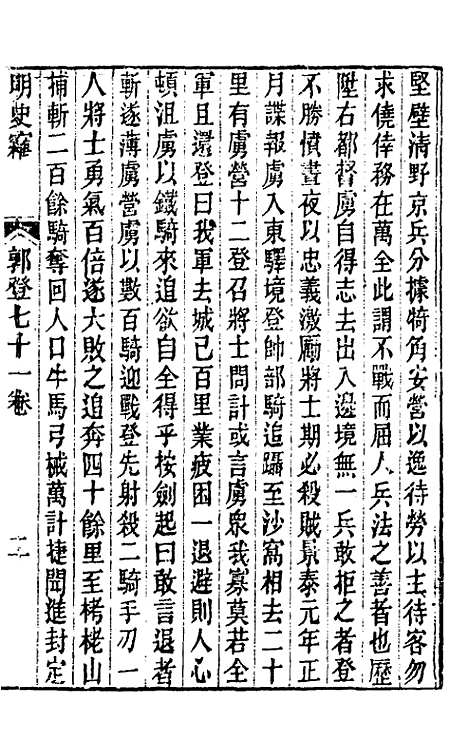 堅壁清野京兵分據犄角安營以逸待勞以主待客勿
求僥倖務在萬全此謂不戰而屈人兵法之善者也歷
陞右都督虜自得志去出入邊境無一兵敢拒之者登
不勝憤晝夜以忠義激勵將士期必殺賊景泰元年正
月諜報虜入東驛境登帥部騎追躡至沙窩相去二十
里有虜營十二登召將士問計或言虜眾我寡莫若全
軍且還登曰我軍去城已百里業疲困一退避則人心
頓沮虜以鐵騎來追欲自全得乎按劍起曰敢言退者
斬遂薄虜營虜以數百騎迎戰登先射殺二騎手刃一
人將士勇氣百倍遂大敗之追奔四十餘里至栲栳山
捕斬二百餘騎奪回人口牛馬弓械萬計捷聞進封定
明史竊 郭登七十一卷 二